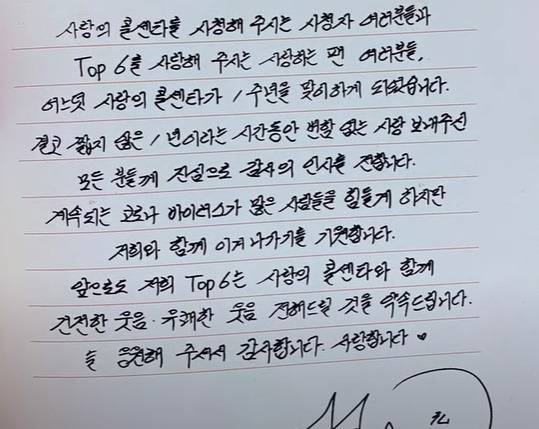 사랑의 콜센타를 시청해 주시는 시청자 여러분들과
Top 6를 사랑해 주시는 사랑하는 팬 여러분들,
어느덧 사랑의 콜센타가 1주년을 맞이하게 되었습니다.
결코 짧지 않은 1년이라는 시간동안 변함 없는 사랑 보내주신
모든 분들께 진심으로 감사의 인사를 전합니다.
계속되는 코로나 바이러스가 많은 사람들을 힘들게 하지만
저희와 함께 이겨나가기를 기원합니다.
앞으로도 저희 Top 6는 사랑의 콜센타와 함께
건전한 웃음·유쾌한 웃음 전해드릴 것을 약속드립니다.
늘 응원해 주셔서 감사합니다. 사랑합니다 ♥